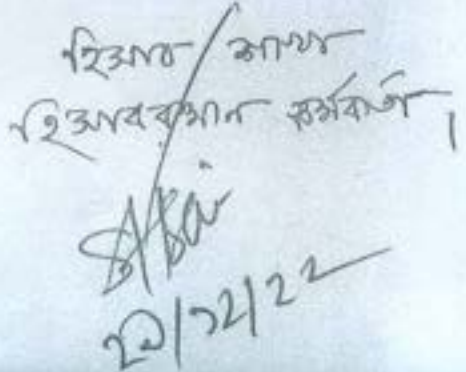 হিসাব / শাখা
হিসাবরক্ষণ কর্মকর্তা,
২১/১২/২২